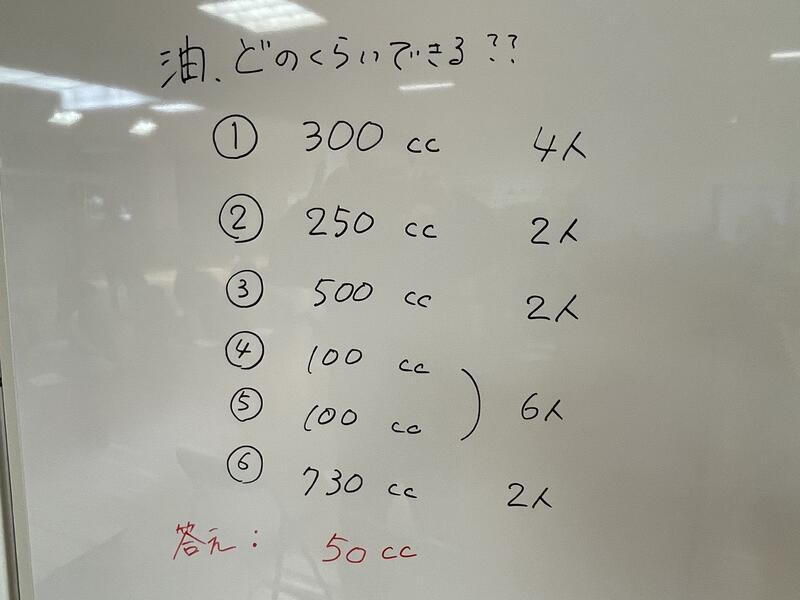 油、どのくらいできる??
① 300 cc 4人
② 250 cc 2人
③ 500 cc 2人
④ 100 cc
⑤ 100 cc ) 6人
⑥ 730 cc 2人
答え: 50 cc